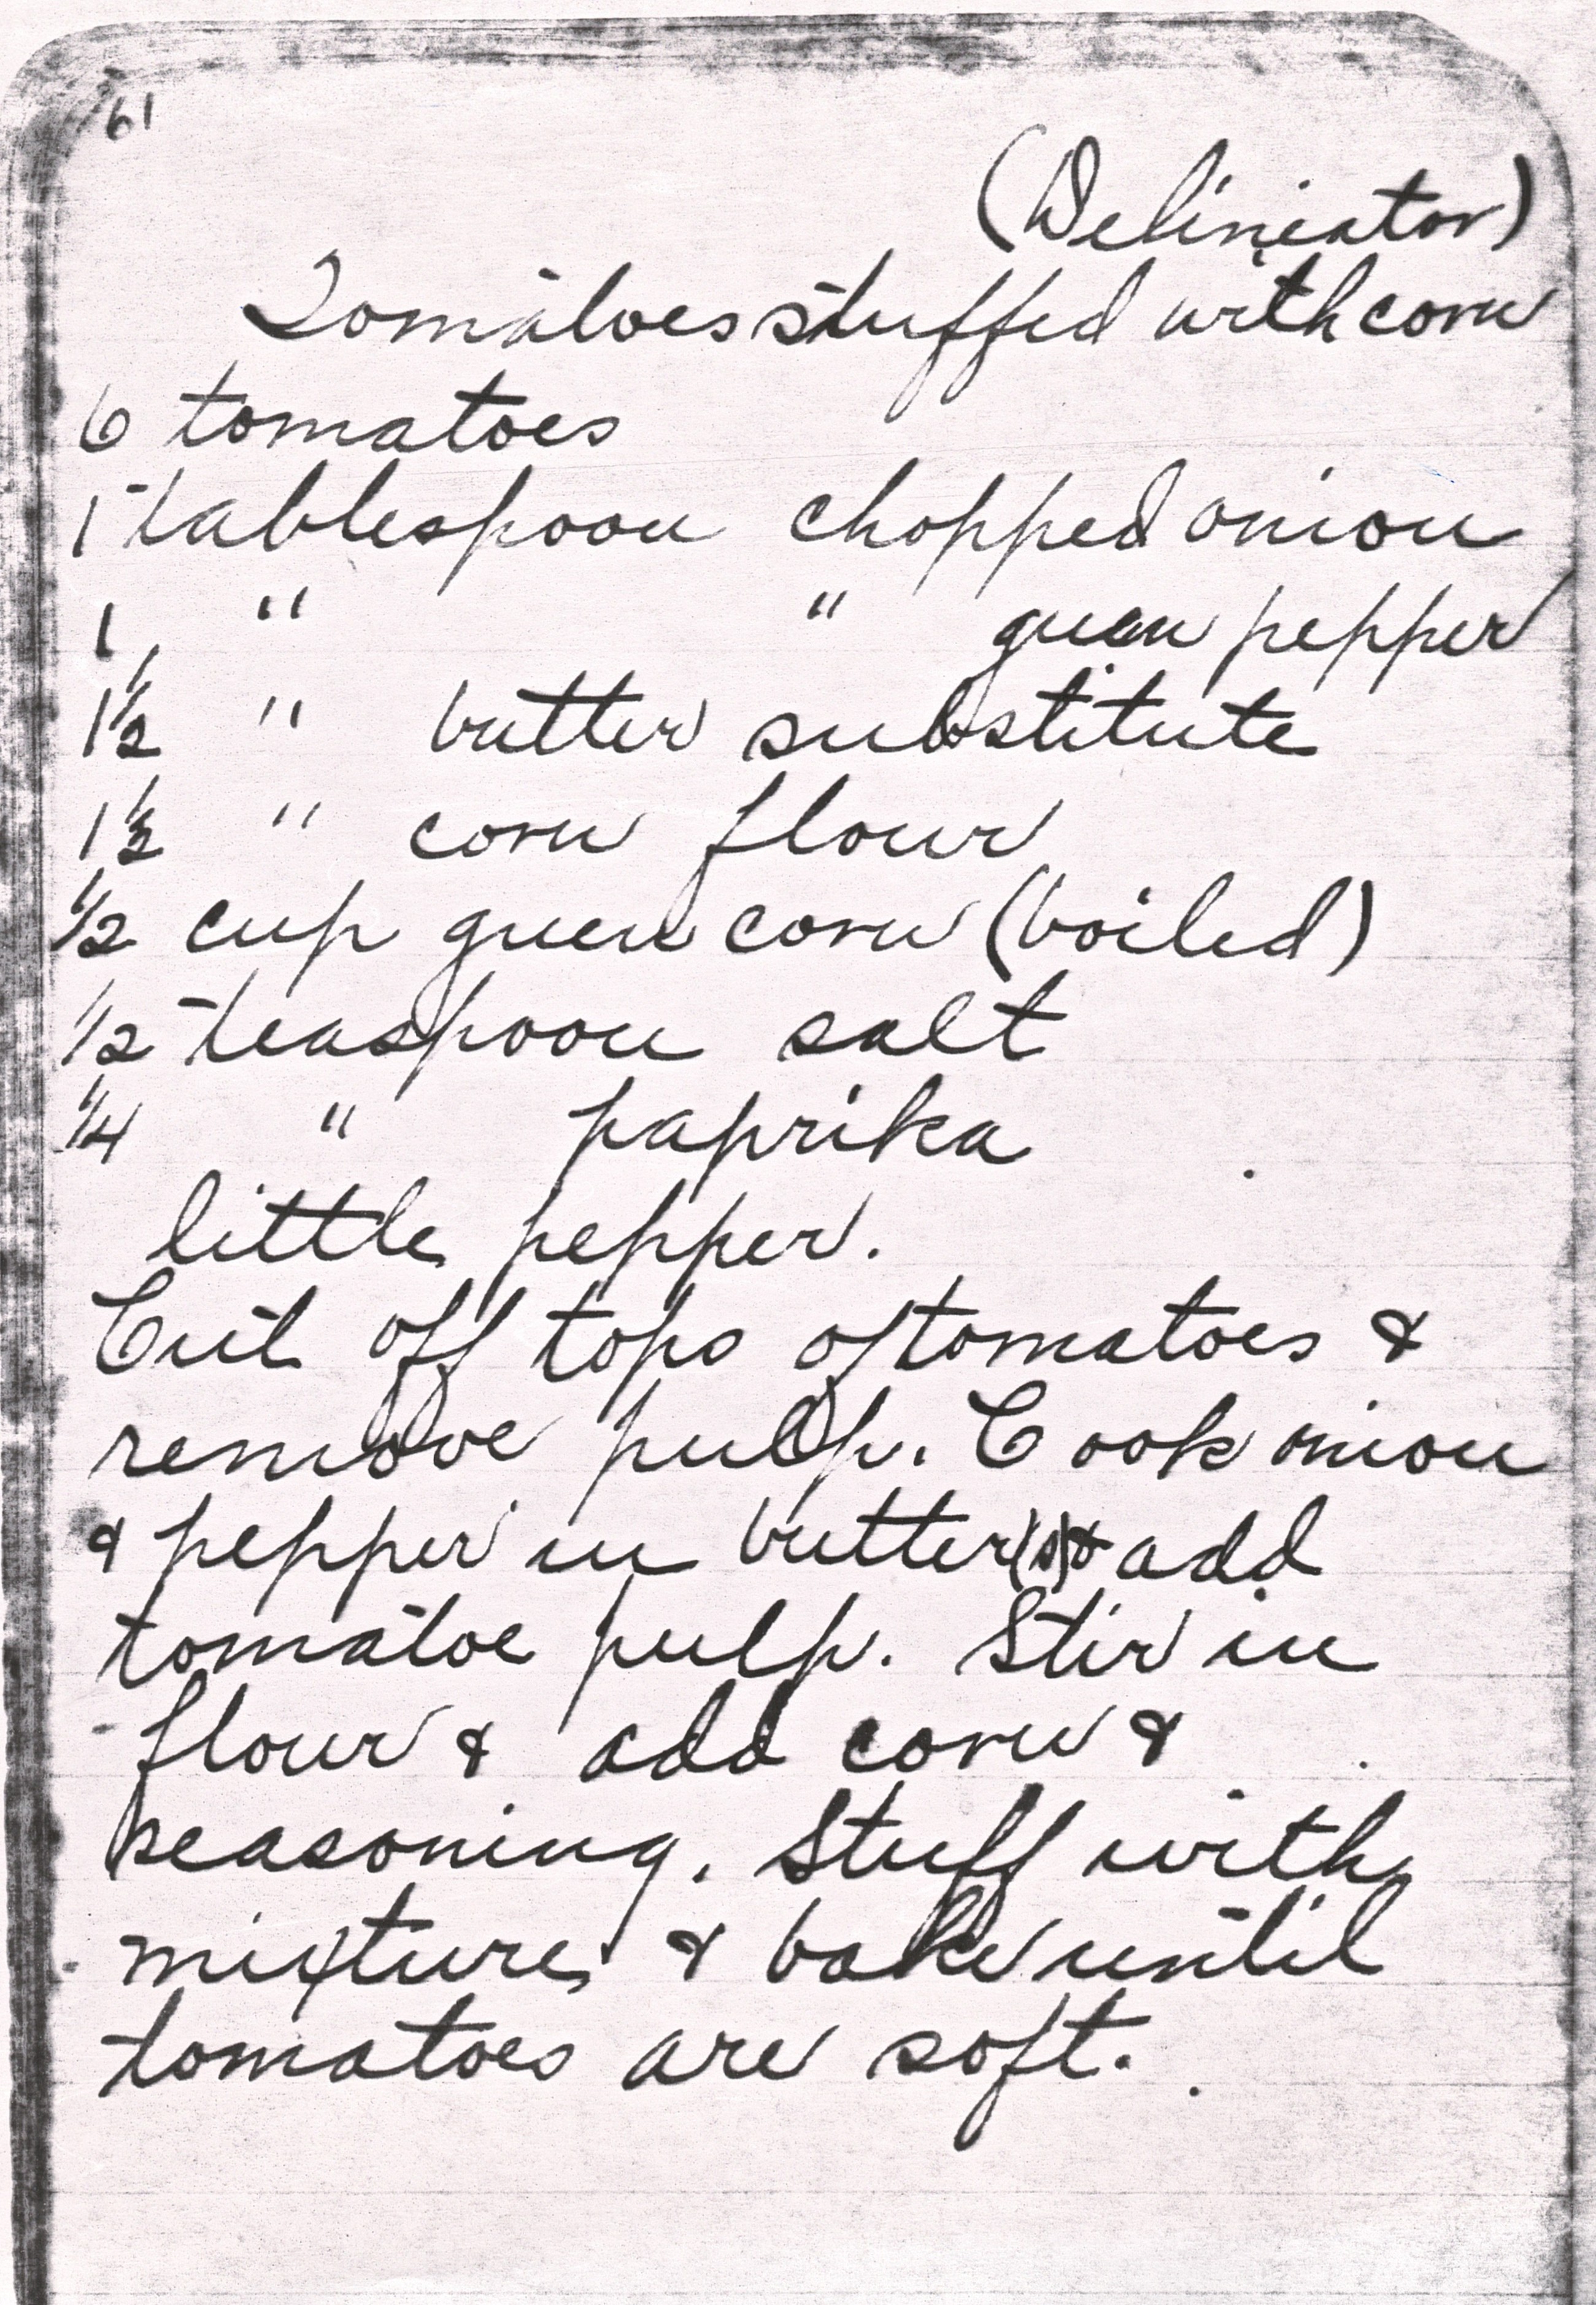 61
(Delineator)
Tomatoes stuffed with corn
6 tomatoes
1 tablespoon chopped onion
1 " " green pepper
1 1/2 " butter substitute
1 1/2 " corn flour
1/2 cup green corn (boiled)
1/2 teaspoon salt
1/4 " paprika
little pepper.
Cut off tops of tomatoes &
remove pulp. Cook onion
& pepper in butter (s) & add
tomatoe pulp. Stir in
flour & add corn &
seasoning. Stuff with
mixture & bake until
tomatoes are soft.